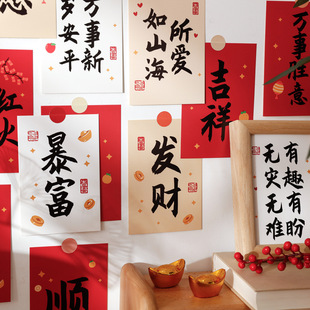 万事新
岁安平
所爱
如山海
万事胜意
红火
吉祥
暴富
发财
有趣有盼
无灾无难
顺